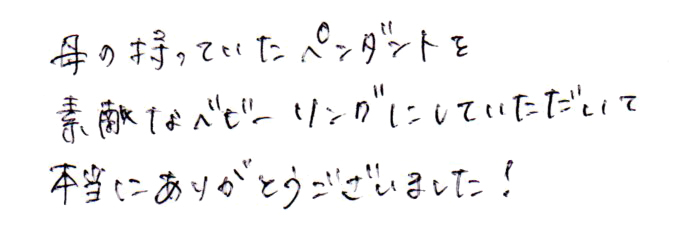 母の持っていたペンダントを
素敵なベビーリングにしていただいて
本当にありがとうございました!